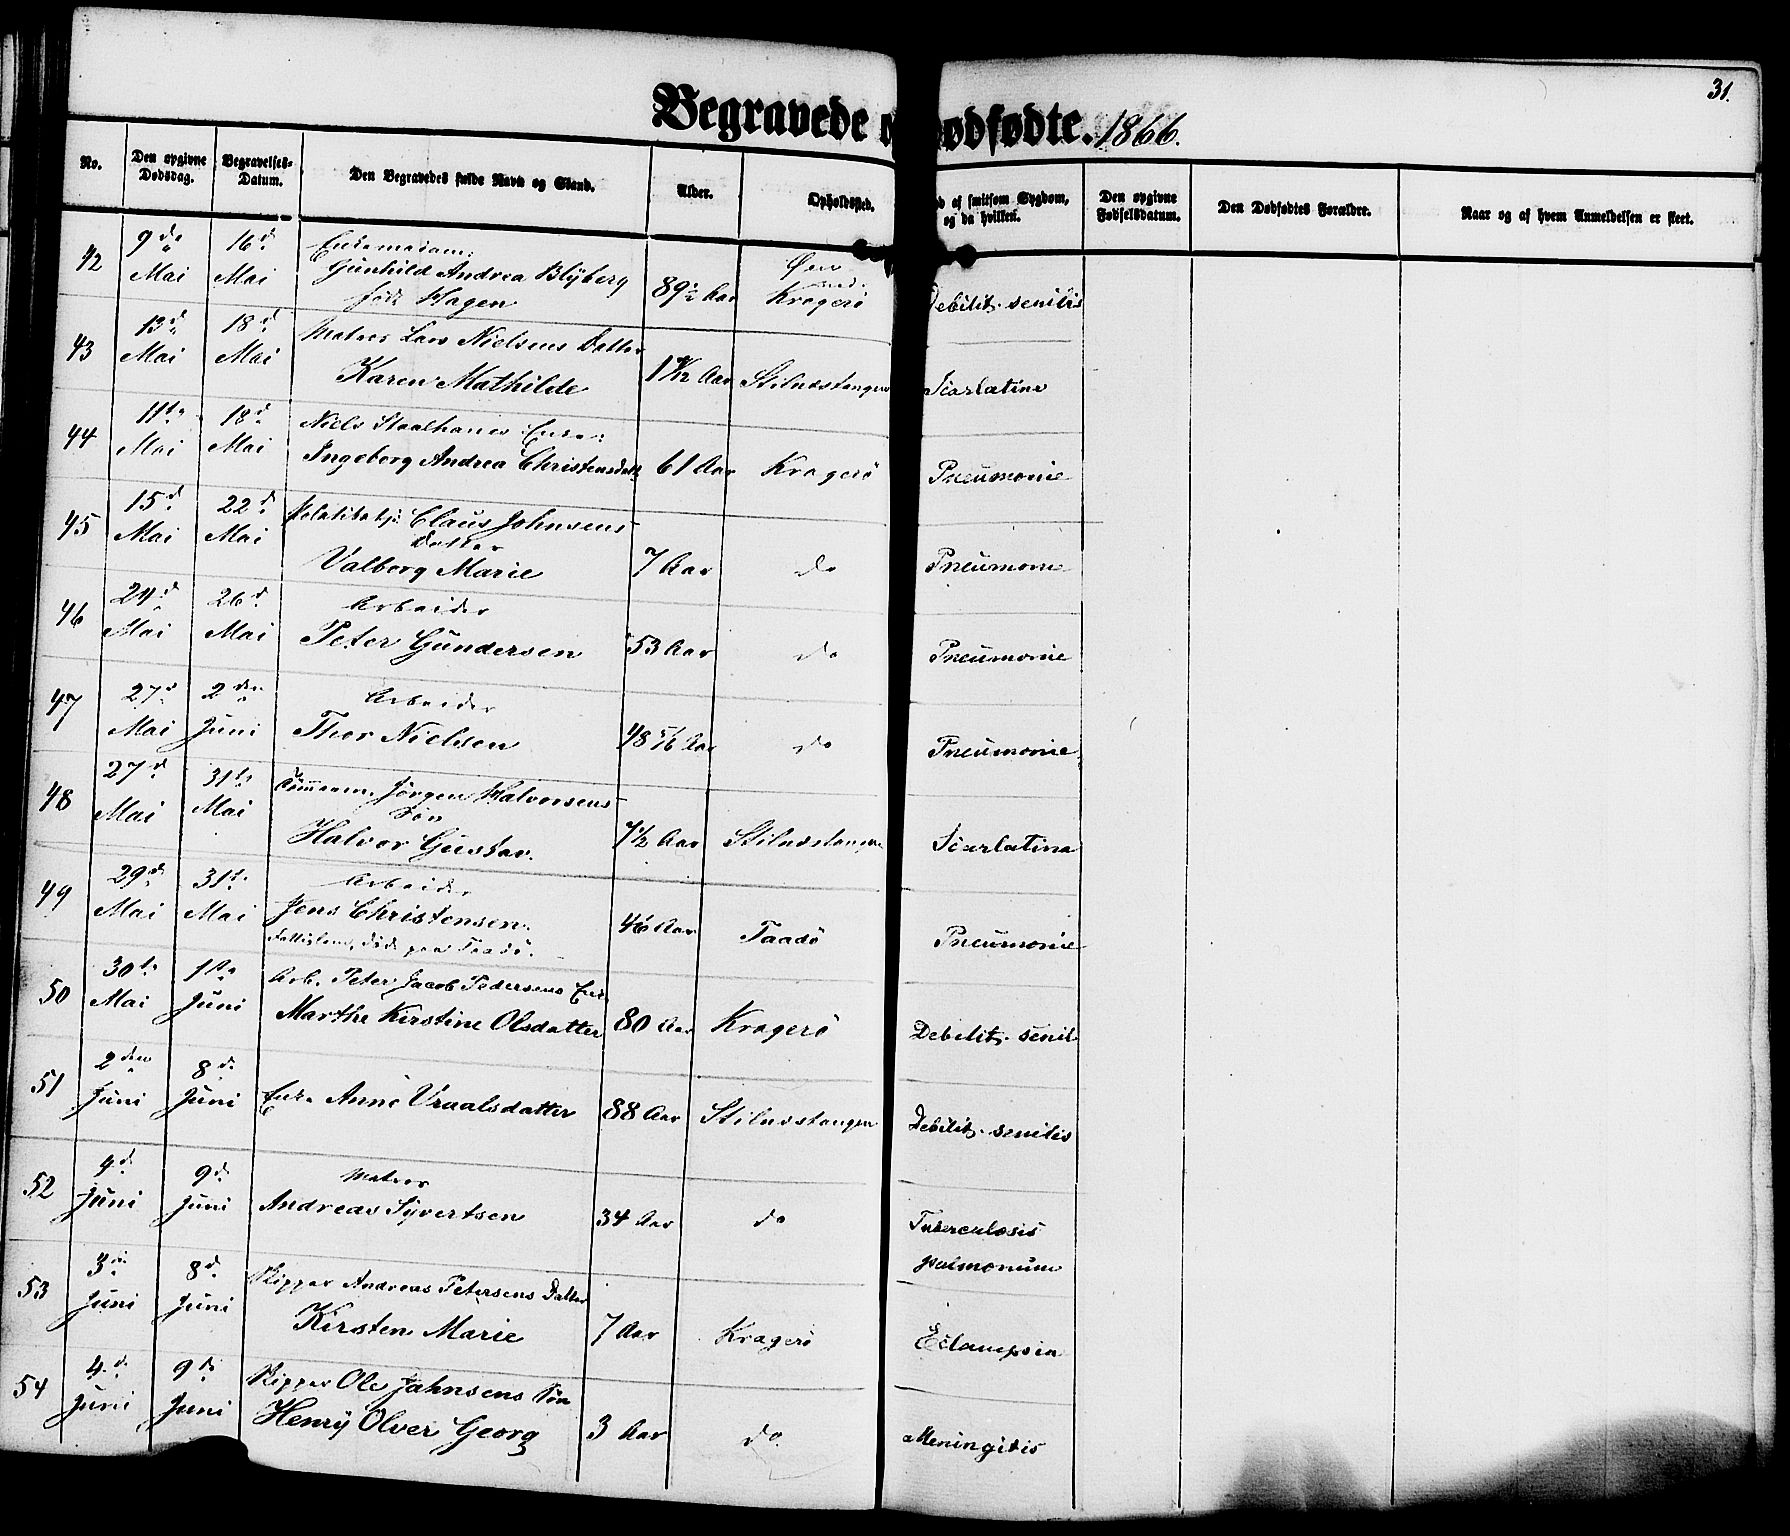 31.
Begravede o dødfødte. 1866.
No. Den opgivne Dødsdag. Begravelses-Datum. Den Begravedes fulde Navn og Stand. Alder. Opholdssted. af smitsom Sygdom, og da hvilken. Den opgivne Fødselsdatum. Den Dødfødtes Forældre. Naar og af hvem Anmeldelsen er skeet.
42 9de Mai 16d Mai Enkemadam:
Gunhild Andrea Blyberg
født Hagen 89½ Aar Kragerö Debilit. senilis
43 13d Mai 18d Mai Matros Lars Nielsens Datter
Karen Mathilde Aar Stilnæstangen Scarlatina
44 11te Mai 18d Mai Niels Staalhanes Enke:
Ingeborg Andrea Christensdatt 61 Aar Kragerö Pneumonie
45 15d Mai 22d Mai Claus Johnsens
Datter
Valborg Marie 7 Aar do Pneumonie
46 24d Mai 26d Mai Arbeider
Peter Gundersen 53 Aar do Pneumonie
47 27d Mai 2den Juni Arbeider
Thor Nielsen 48 5/6 Aar do Pneumonie
48 27d Mai 31te Mai Tömmerm. Jörgen Halvorsens
Sön
Halvor Gustav. 7½ Aar Stilnæstangen Scarlatina
49 29d Mai 31te Mai Arbeider
Jens Christensen.
Fattiglem, död paa Taadö. 46 Aar Taadö Pneumonie
50 30te Mai 1ste Juni Arb. Peter Jacob Pedersens Enke
Marthe Kirstine Olsdatter 80 Aar Kragerö Debilit. senil
51 2den Juni 8d Juni Enke Anne Vraalsdatter 88 Aar Stilnæstangen Debilit. senilis
52 4d Juni 9d Juni Matros
Andreas Syvertsen 34 Aar do Tuberculosis
pulmonum
53 3die Juni 8d Juni Skipper Andreas Petersens Datter
Kirsten Marie 7 Aar Kragerö Eclampsia
54 4d Juni 9d Juni Skipper Ole Jahnsens Sön
Henry Olver Georg 3 Aar do Meningitis